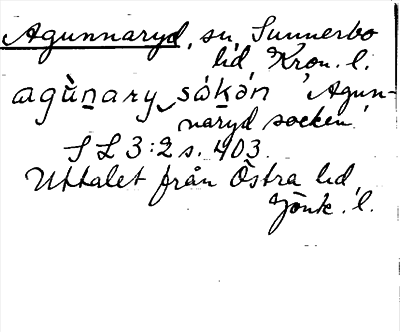 Agunnaryd, sn, Sunnerbo
hd, Kron. l.
agùnary sókən 'Agun-
naryd socken'
S L 3:2 s. 403.
Uttalet från Östra hd,
Jönk. l.